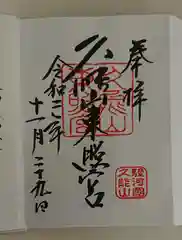 奉拝
久能山東照宮
令和二年
十一月二十九日
駿河国
久能山